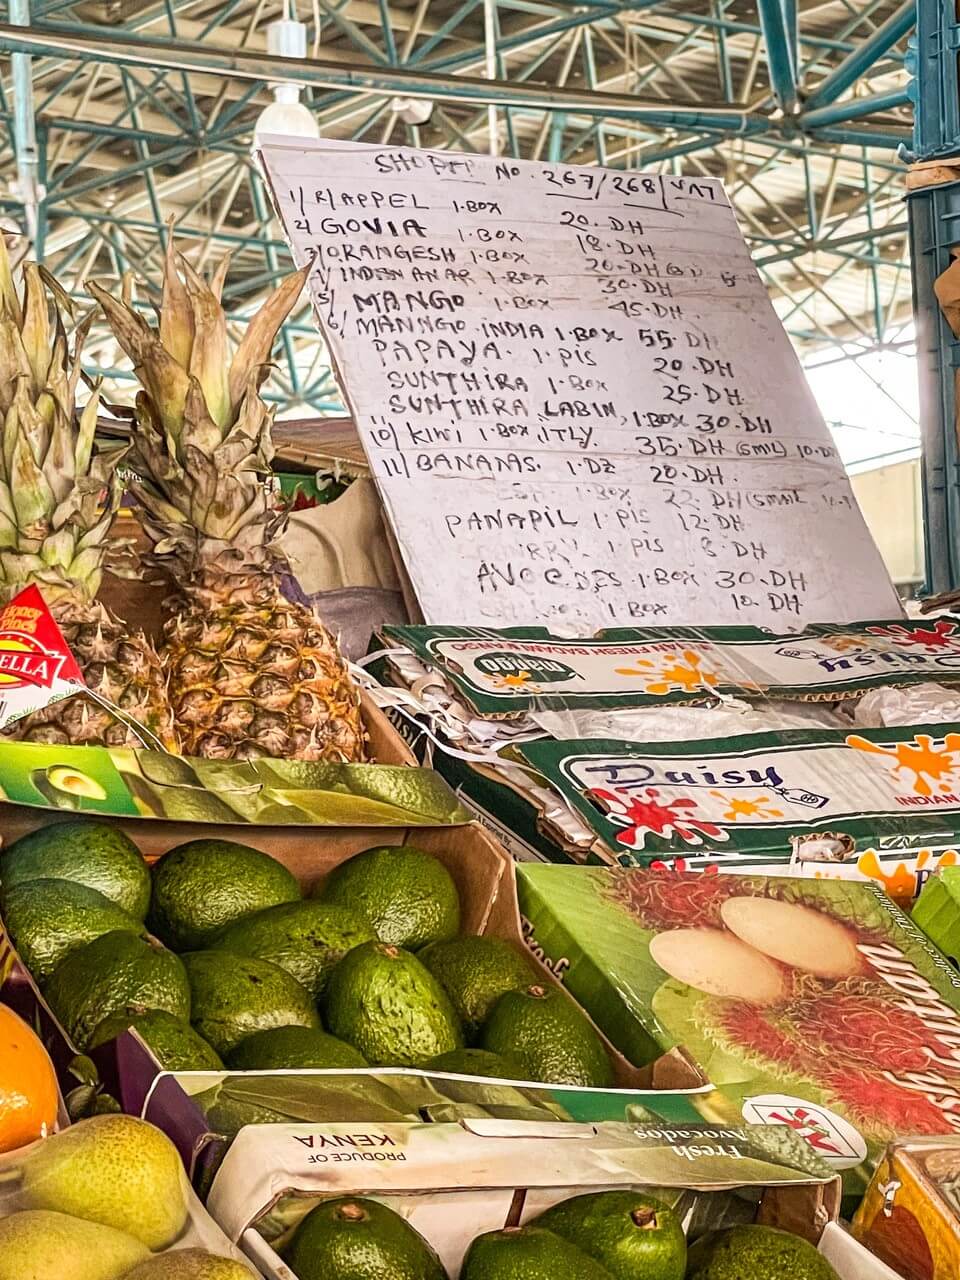 No. 267/268/VAT
1/ R/APPEL 1.BOX 20.DH
2/ GOVIA 1.BOX 18.DH
3/ ORANGESH 1.BOX 20.DH
ANAR 1.BOX 30.DH
5/ MANGO 1.BOX 45.DH.
6/ MANNGO.INDIA 1.BOX 55 DH
PAPAYA. 1.PIS 20.DH
SUNTHIRA 1.BOX 25.DH
SUNTHIRA LABIN, 1.BOX 30.DH
10/ KIWI 1.BOX, ITLY. 35.DH (SMIL) 10.DH
11/ BANANAS. 1.DZ 20.DH.
1.BOX 22.DH (SMAIL
PANAPIL 1.PIS 12.DH
1.PIS 8.DH
1.BOX 30.DH
1.BOX 10.DH
Honey
Pines
ELLA
FRESH BADAMI MANGO
mango
Daisy
Daisy
Rambutan
Fresh
PRODUCE OF
KENYA
Fresh
Avocados